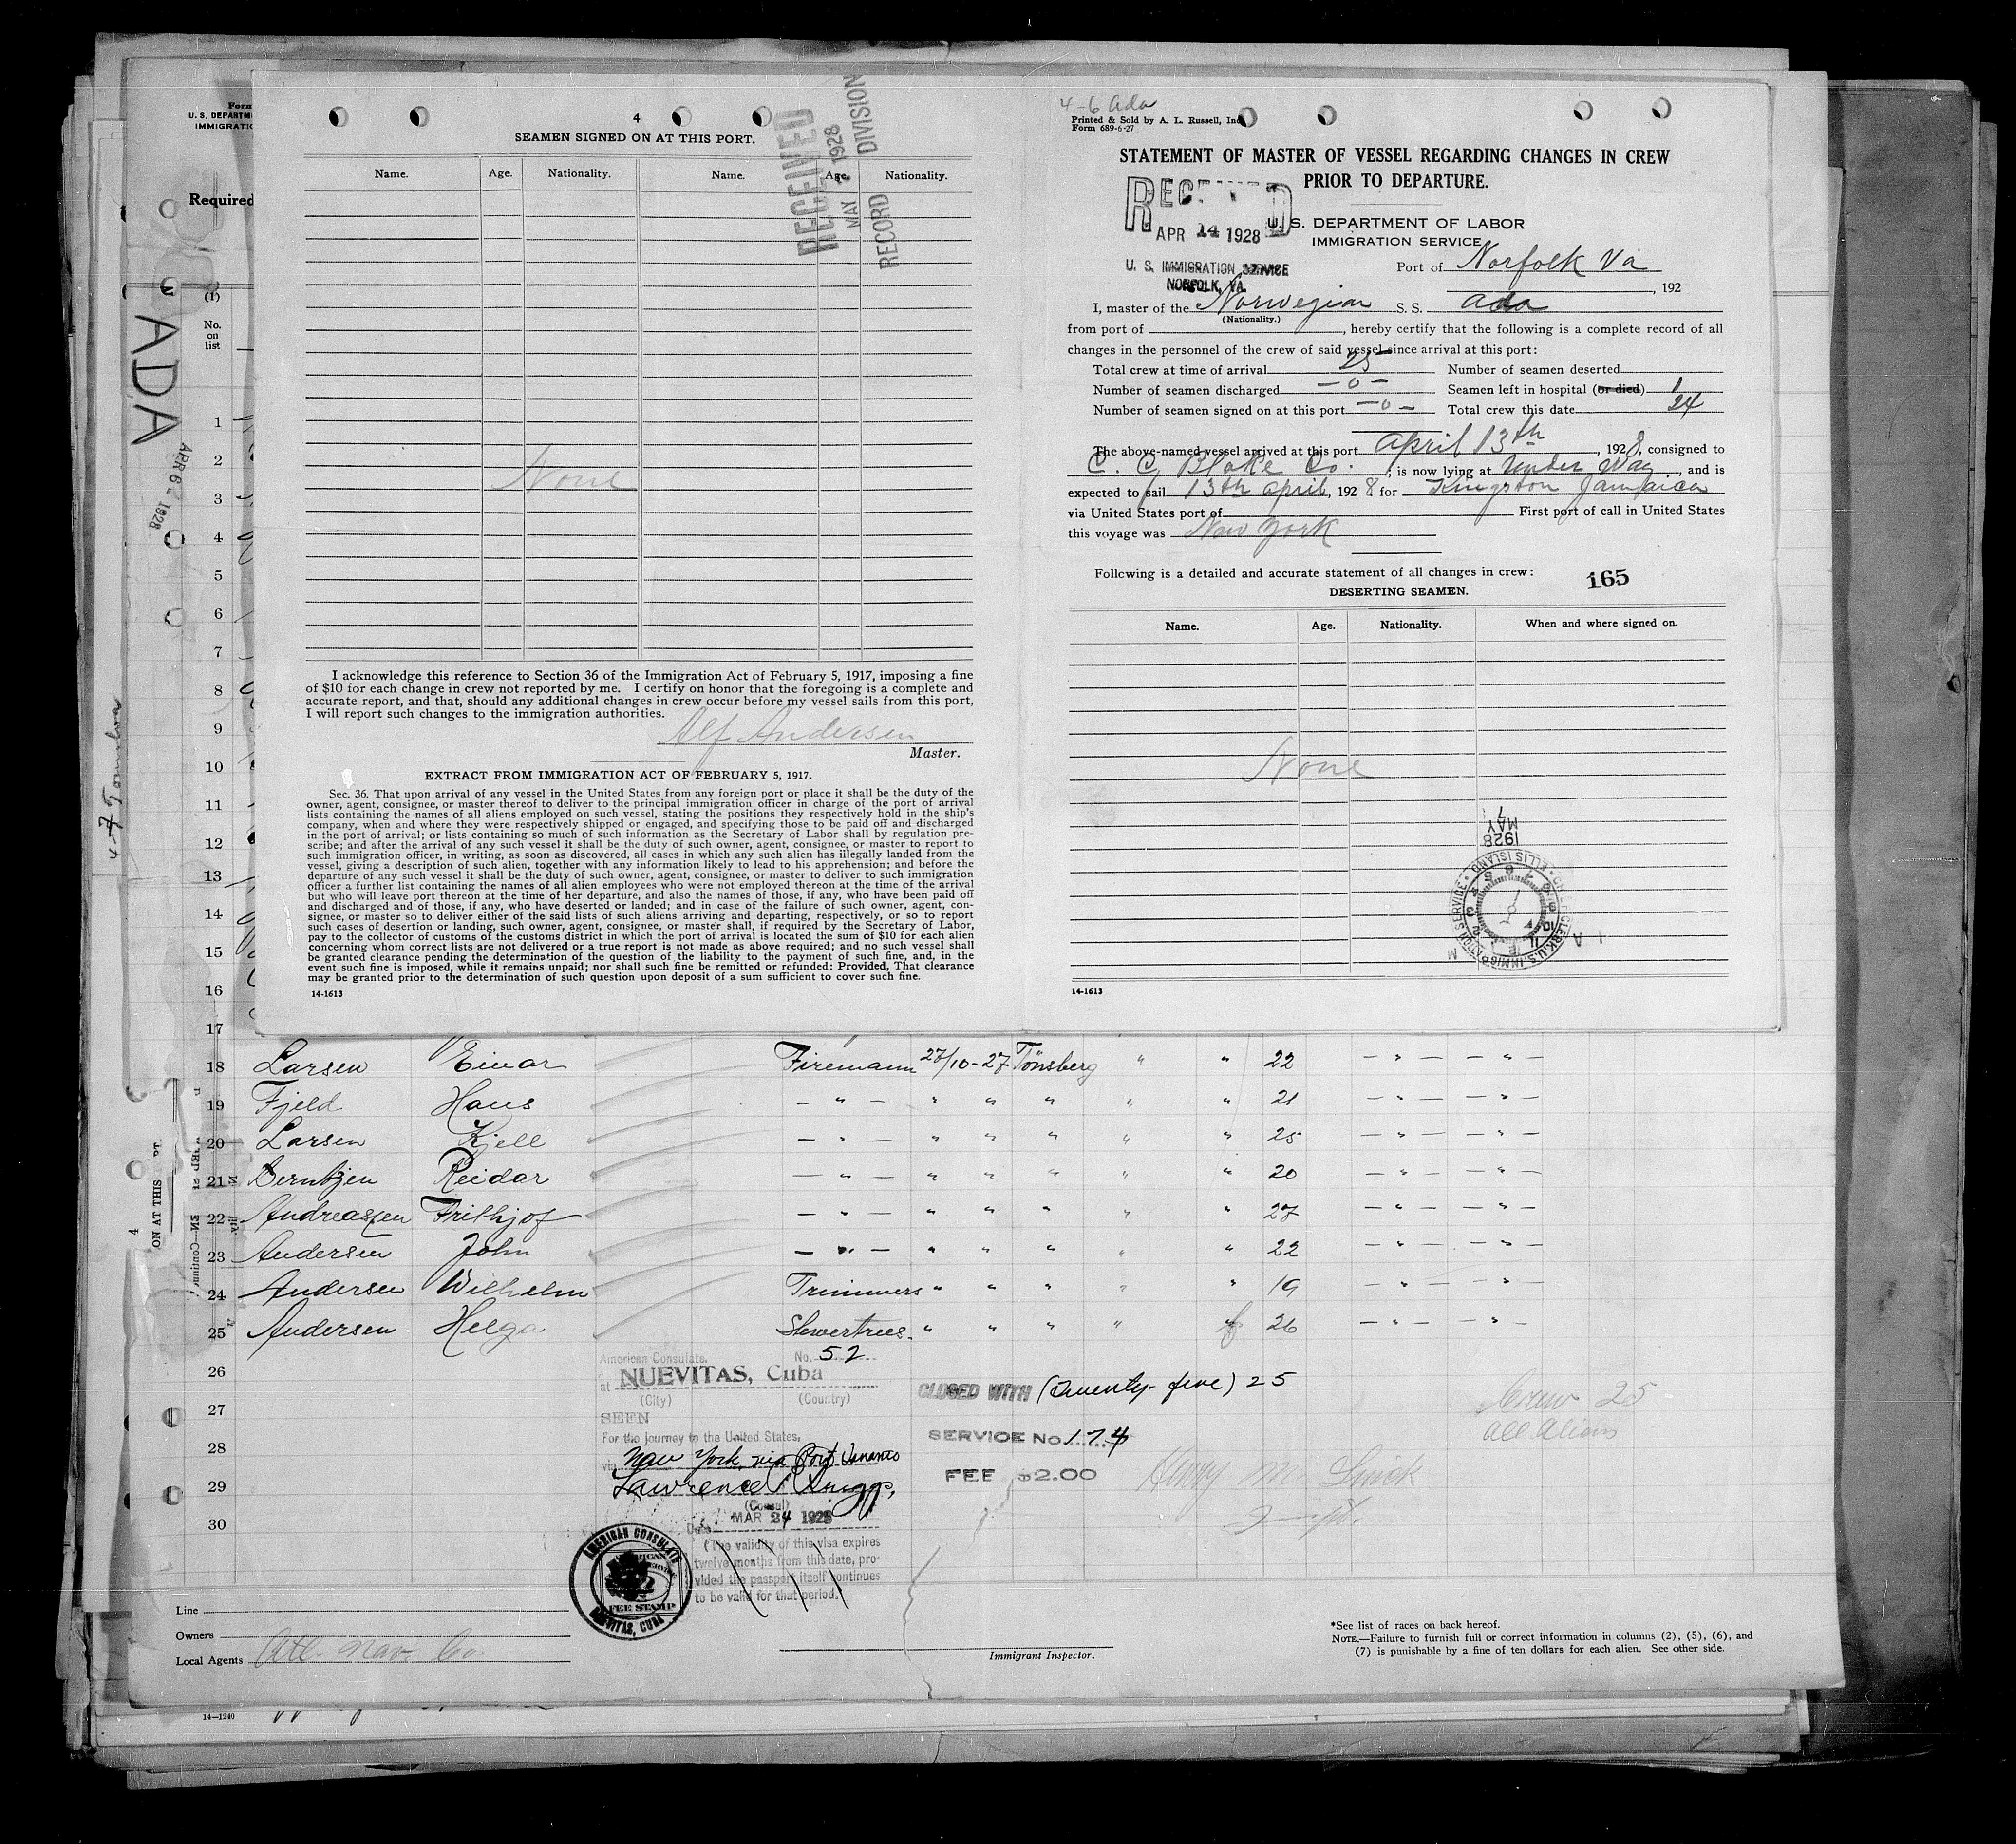 4
SEAMEN SIGNED ON AT THIS PORT.
Name. Age. Nationality. Name. Age. Nationality.
RECEIVED
MAY 7 1928
RECORD DIVISION
None
I acknowledge this reference to Section 36 of the Immigration Act of February 5, 1917, imposing a fine
of $10 for each change in crew not reported by me. I certify on honor that the foregoing is a complete and
accurate report, and that, should any additional changes in crew occur before my vessel sails from this port,
I will report such changes to the immigration authorities.
Alf Andersen
Master.
EXTRACT FROM IMMIGRATION ACT OF FEBRUARY 5, 1917.
Sec. 36. That upon arrival of any vessel in the United States from any foreign port or place it shall be the duty of the
owner, agent, consignee, or master thereof to deliver to the principal immigration officer in charge of the port of arrival
lists containing the names of all aliens employed on such vessel, stating the positions they respectively hold in the ship's
company, when and where they were respectively shipped or engaged, and specifying those to be paid off and discharged
in the port of arrival; or lists containing so much of such information as the Secretary of Labor shall by regulation pre-
scribe; and after the arrival of any such vessel it shall be the duty of such owner, agent, consignee, or master to report to
such immigration officer, in writing, as soon as discovered, all cases in which any such alien has illegally landed from the
vessel, giving a description of such alien, together with any information likely to lead to his apprehension; and before the
departure of any such vessel it shall be the duty of such owner, agent, consignee, or master to deliver to such immigration
officer a further list containing the names of all alien employees who were not employed thereon at the time of the arrival
but who will leave port thereon at the time of her departure, and also the names of those, if any, who have been paid off
and discharged and of those, if any, who have deserted or landed; and in case of the failure of such owner, agent, con-
signee, or master so to deliver either of the said lists of such aliens arriving and departing, respectively, or so to report
such cases of desertion or landing, such owner, agent, consignee, or master shall, if required by the Secretary of Labor,
pay to the collector of customs of the customs district in which the port of arrival is located the sum of $10 for each alien
concerning whom correct lists are not delivered or a true report is not made as above required; and no such vessel shall
be granted clearance pending the determination of the question of the liability to the payment of such fine, and, in the
event such fine is imposed, while it remains unpaid; nor shall such fine be remitted or refunded: Provided, That clearance
may be granted prior to the determination of such question upon deposit of a sum sufficient to cover such fine.
14-1613
4-6 Ada
Printed & Sold by A. L. Russell, Inc
Form 689-6-27
STATEMENT OF MASTER OF VESSEL REGARDING CHANGES IN CREW
PRIOR TO DEPARTURE.
RECEIVED
APR 14 1928
U. S. IMMIGRATION SERVICE
NORFOLK, VA.
U. S. DEPARTMENT OF LABOR
IMMIGRATION SERVICE
Port of Norfolk Va
, 192
I, master of the Norwegian S. S. Ada
(Nationality.)
from port of , hereby certify that the following is a complete record of all
changes in the personnel of the crew of said vessel since arrival at this port:
Total crew at time of arrival 25 Number of seamen deserted
Number of seamen discharged -0- Seamen left in hospital (or died) 1
Number of seamen signed on at this port -0- Total crew this date 24
The above-named vessel arrived at this port April 13th, 1928, consigned to
C. G. Blake Co. ; is now lying at Under Way, and is
expected to sail 13th April, 1928 for Kingston Jamaica
via United States port of First port of call in United States
this voyage was New York
Following is a detailed and accurate statement of all changes in crew:
165
DESERTING SEAMEN.
Name. Age. Nationality. When and where signed on.
None
MAY 7
1928
CHIEF CLERK U.S. IMMIGRATION SERVICE ELLIS ISLAND
14-1613
Form
U. S. DEPARTM
IMMIGRATIO
Required
(1)
No.
on
list
ADA
APR 6 1928
1
2
3
4
5
6
7
8
9
10
11
12
13
14
15
16
17
18 Larsen Einar Firemann 27/10-27 Tönsberg " " 22 - " - - " -
19 Fjeld Hans - " - " " " " " 21 - " - - " -
20 Larsen Kjell - " - " " " " " 25 - " - - " -
21 Berntzen Reidar - " - " " " " " 20 - " - - " -
22 Andreassen Frithjof - " - " " " " " 27 - " - - " -
23 Andersen John - " - " " " " " 22 - " - - " -
24 Andersen Wilhelm Trimmers " " " " " 19 - " - - " -
25 Andersen Helga " " " " f 26 - " - - " -
26
27
28
29
30
American Consulate. No. 52
at NUEVITAS, Cuba
(City) (Country)
SEEN
For the journey to the United States,
via New York via Port
Lawrence
(Consul)
Date MAR 24 1928
(The validity of this visa expires
twelve months from this date, pro-
vided the passport itself continues
to be valid for that period.)
AMERICAN CONSULATE
FEE STAMP
NUEVITAS, CUBA
CLOSED WITH (twenty-five) 25
SERVICE No. 174
FEE $2.00
Crew 25
all aliens
ON AT THIS
4
Line
Owners
Local Agents Atl. Nav. Co.
Immigrant Inspector.
*See list of races on back hereof.
NOTE.—Failure to furnish full or correct information in columns (2), (5), (6), and
(7) is punishable by a fine of ten dollars for each alien. See other side.
14-1240